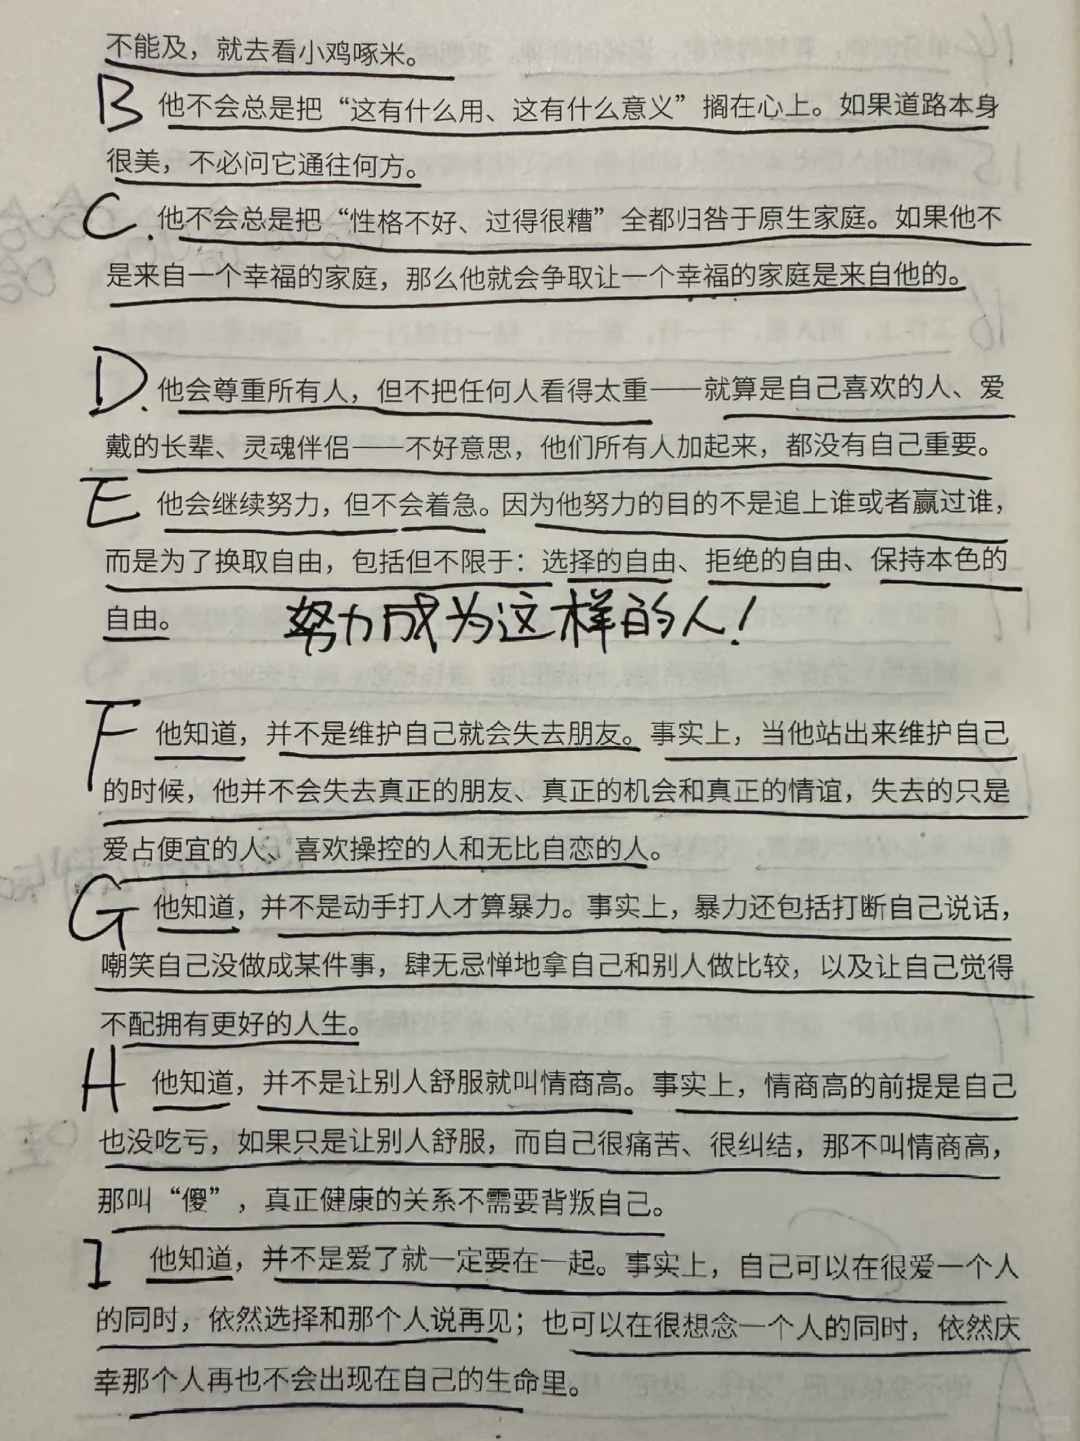 不能及，就去看小鸡啄米。
B 他不会总是把“这有什么用、这有什么意义”搁在心上。如果道路本身
很美，不必问它通往何方。
C. 他不会总是把“性格不好、过得很糟”全都归咎于原生家庭。如果他不
是来自一个幸福的家庭，那么他就会争取让一个幸福的家庭是来自他的。
D. 他会尊重所有人，但不把任何人看得太重——就算是自己喜欢的人、爱
戴的长辈、灵魂伴侣——不好意思，他们所有人加起来，都没有自己重要。
E 他会继续努力，但不会着急。因为他努力的目的不是追上谁或者赢过谁，
而是为了换取自由，包括但不限于：选择的自由、拒绝的自由、保持本色的
自由。 努力成为这样的人！
F 他知道，并不是维护自己就会失去朋友。事实上，当他站出来维护自己
的时候，他并不会失去真正的朋友、真正的机会和真正的情谊，失去的只是
爱占便宜的人、喜欢操控的人和无比自恋的人。
G 他知道，并不是动手打人才算暴力。事实上，暴力还包括打断自己说话，
嘲笑自己没做成某件事，肆无忌惮地拿自己和别人做比较，以及让自己觉得
不配拥有更好的人生。
H 他知道，并不是让别人舒服就叫情商高。事实上，情商高的前提是自己
也没吃亏，如果只是让别人舒服，而自己很痛苦、很纠结，那不叫情商高，
那叫“傻”，真正健康的关系不需要背叛自己。
I 他知道，并不是爱了就一定要在一起。事实上，自己可以在很爱一个人
的同时，依然选择和那个人说再见；也可以在很想念一个人的同时，依然庆
幸那个人再也不会出现在自己的生命里。